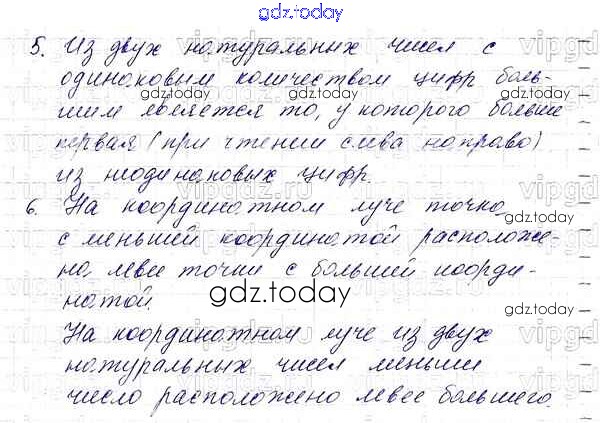 gdz.today
5. Из двух натуральных чисел с
одинаковым количеством цифр боль-
шим является то, у которого больше
первая (при чтении слева направо)
из неодинаковых цифр.
6. На координатном луче точка
с меньшей координатой расположе-
на левее точки с большей коорди-
натой.
gdz.today
На координатном луче из двух
натуральных чисел меньши
число расположено левее большего.